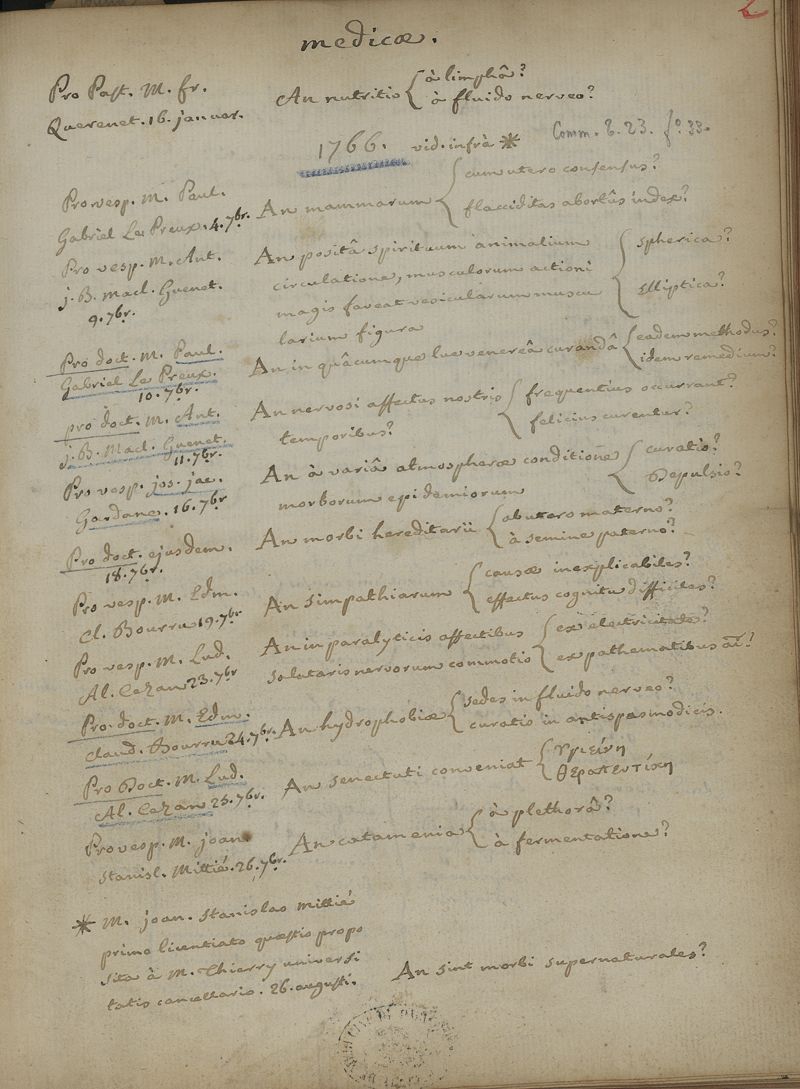 medicæ.
Pro Past. M. fr.
Querenet. 16. januar.
An nutritio { à limphâ?
à fluido nerveo?
1766. vid. infrà *
Comm. t. 23. fo. 33.
Pro vesp. M. Paul.
Gabriel Le Preux. 4. 7br.
An mammarum { cum utero consensus?
flacciditas abortûs index?
Pro vesp. M. Ant.
j. B. Macl. Guenet.
9. 7br.
An positâ spirituum animalium
circulatione, musculorum actioni
magis faveat vesicularum muscu
larium figura { spherica?
elliptica?
Pro doct. M. Paul.
Gabriel Le Preux.
10. 7br.
An in quâcumque lue venereâ curandâ { eadem methodus?
idem remedium?
pro doct. M. Ant.
j. B. Macl. Guenet.
11. 7br.
An nervosi affectus nostris
temporibus? { frequentius occurrant?
felicius curentur?
Pro vesp. jos. jac.
Gardane. 16. 7br
An à variâ atmospheræ conditione
morborum epidemiorum { curatio?
Depulsio?
Pro doct. ejusdem.
18. 7br.
An morbi hereditarii { ab utero materno?
à semine paterno?
Pro vesp. M. Edm.
Cl. Bourru 19. 7br
An simpathiarum { causæ inexplicabiles?
effectus cognitu difficiles?
Pro vesp. M. Lud.
Al. Cezan 23. 7br
An in paralyticis affectibus
salutaris nervorum commotio { ex electricitate?
ex pathematibus ai?
Pro doct. M. Edm.
Claud. Bourru 24. 7br.
An hydrophobiæ { sedes in fluido nerveo?
curatio in antispasmodicis.
Pro Doct. M. Lud.
Al. Cezan 25. 7br.
An senectuti conveniat { Υγιείνη
θεραπευτίκη
Pro vesp. M. joan.
Stanisl. Mittié. 26. 7br.
An catamenia { à plethorâ?
à fermentatione?
* M. joan. Stanislao Mittié
primo licentiato quæstio propo
sita à M. Thierry universi
tatis cancellario. 26. augusti.
An sint morbi supernaturales?